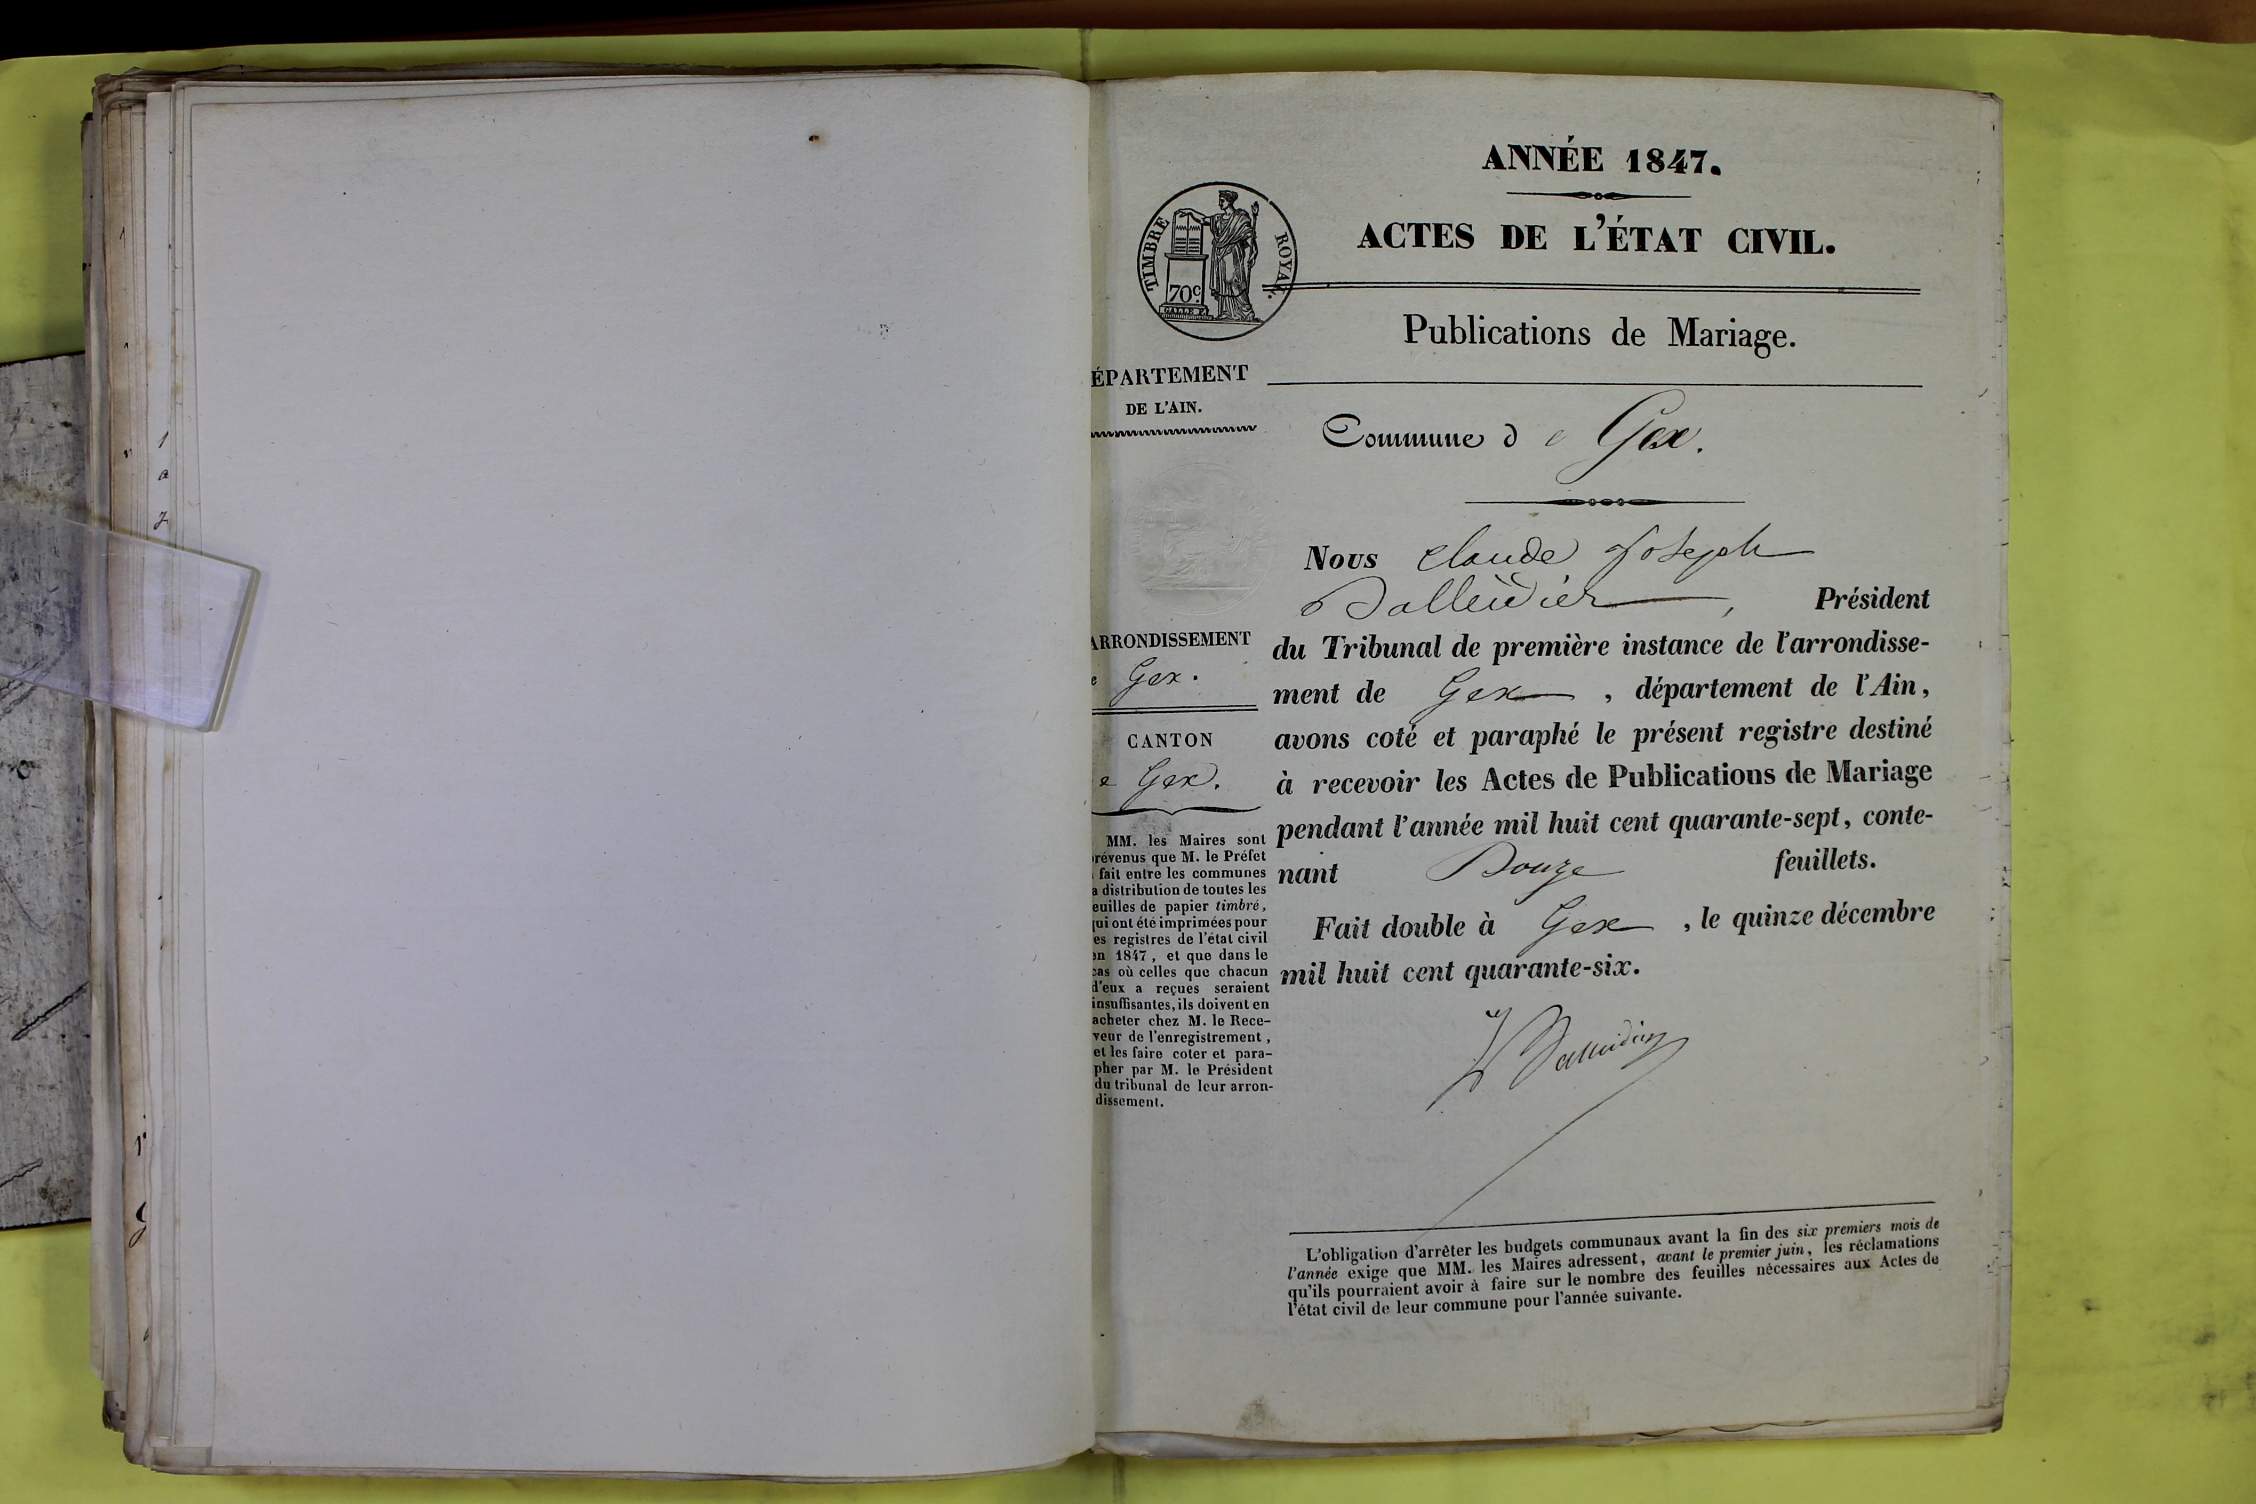 ANNÉE 1847.
ACTES DE L'ÉTAT CIVIL.
TIMBRE ROYAL.
70c
Publications de Mariage.
ÉPARTEMENT
DE L'AIN.
Commune de Gex.
Nous Claude Joseph
Dalleidier, Président
du Tribunal de première instance de l'arrondisse-
ment de Gex, département de l'Ain,
avons coté et paraphé le présent registre destiné
à recevoir les Actes de Publications de Mariage
pendant l'année mil huit cent quarante-sept, conte-
nant Douze feuillets.
Fait double à Gex, le quinze décembre
mil huit cent quarante-six.
ARRONDISSEMENT
e Gex.
CANTON
e Gex.
MM. les Maires sont
révenus que M. le Préfet
fait entre les communes
a distribution de toutes les
euilles de papier timbré,
qui ont été imprimées pour
es registres de l'état civil
en 1847, et que dans le
cas où celles que chacun
d'eux a reçues seraient
insuffisantes, ils doivent en
acheter chez M. le Rece-
veur de l'enregistrement,
et les faire coter et para-
pher par M. le Président
du tribunal de leur arron-
dissement.
L'obligation d'arrêter les budgets communaux avant la fin des six premiers mois de
l'année exige que MM. les Maires adressent, avant le premier juin, les réclamations
qu'ils pourraient avoir à faire sur le nombre des feuilles nécessaires aux Actes de
l'état civil de leur commune pour l'année suivante.